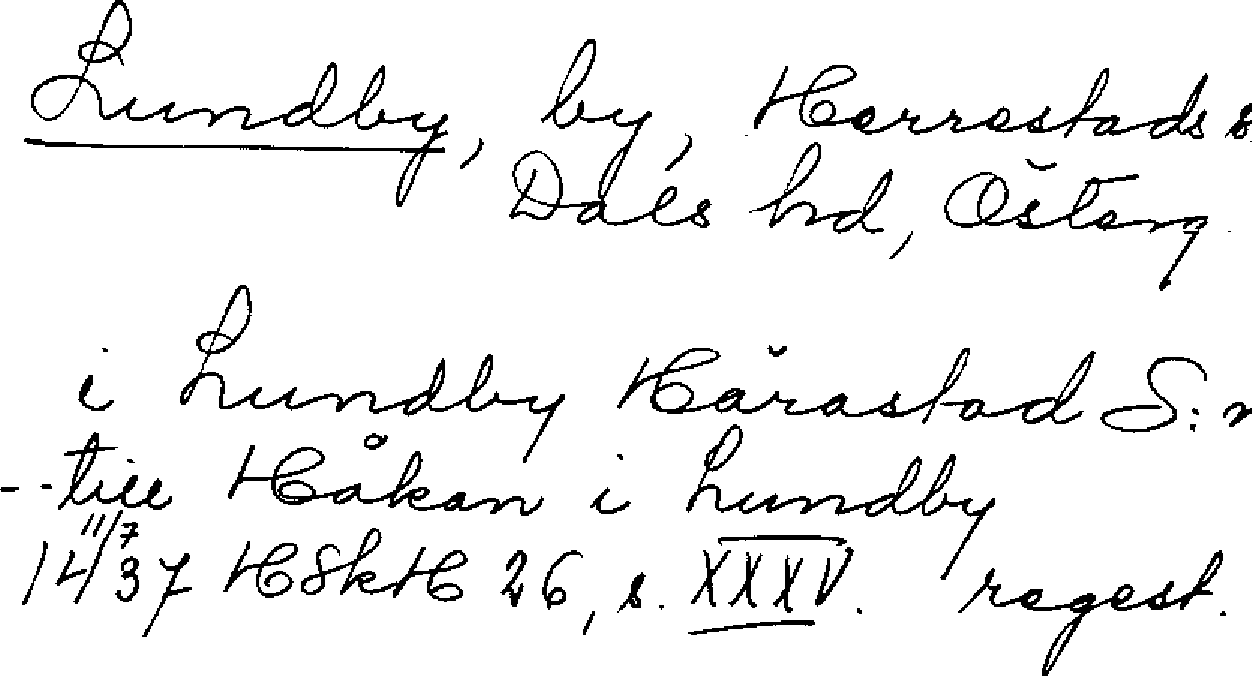 Lundby, by, Herrestads s
Dals hd, Österg
i Lundby Hårastad S:n
-- till Håkan i Lundby
14 11/7 37 HSkH 26, s. XXXV. regest.